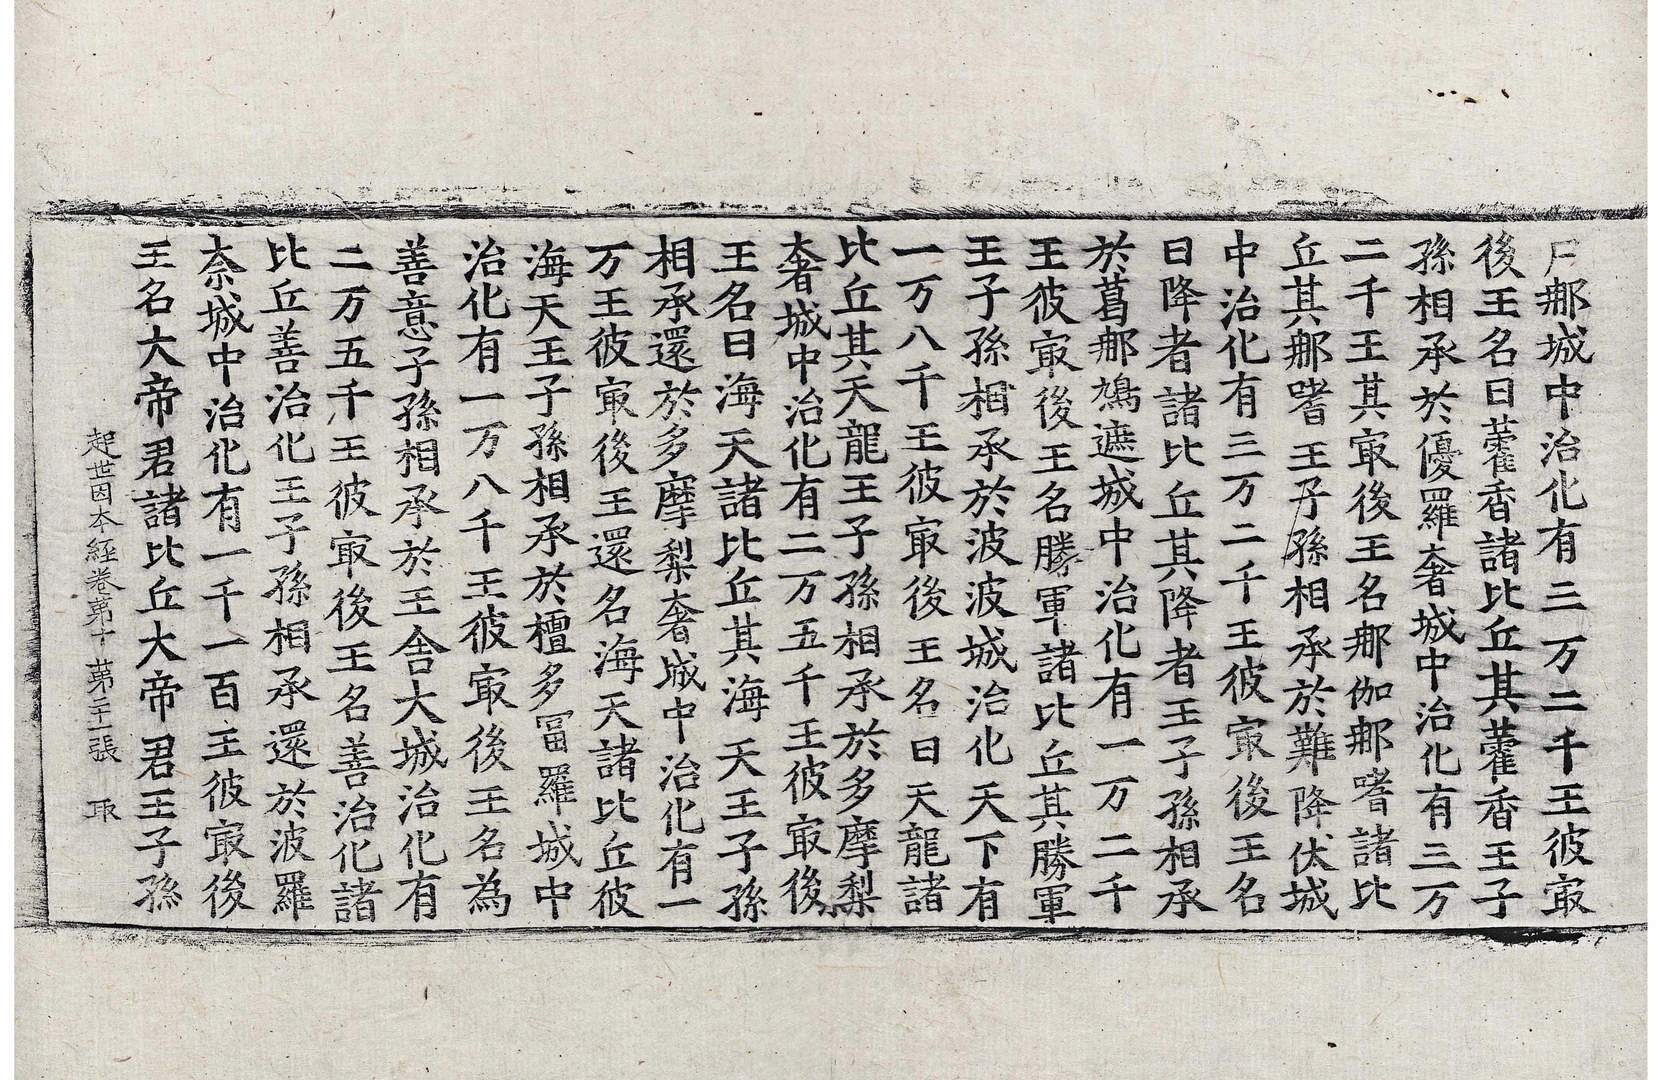 尸那城中治化有三万二千王彼㝡
後王名曰藿香諸比丘其藿香王子
孫相承於優羅奢城中治化有三万
二千王其㝡後王名那伽那嗜諸比
丘其那嗜王子孫相承於難降伏城
中治化有三万二千王彼㝡後王名
曰降者諸比丘其降者王子孫相承
於葛那鳩遮城中治化有一万二千
王彼㝡後王名勝軍諸比丘其勝軍
王子孫相承於波波城治化天下有
一万八千王彼㝡後王名曰天龍諸
比丘其天龍王子孫相承於多摩梨
奢城中治化有二万五千王彼㝡後
王名曰海天諸比丘其海天王子孫
相承還於多摩梨奢城中治化有一
万王彼㝡後王還名海天諸比丘彼
海天王子孫相承於檀多冨羅城中
治化有一万八千王彼㝡後王名為
善意子孫相承於王舎大城治化有
二万五千王彼㝡後王名善治化諸
比丘善治化王子孫相承還於波羅
柰城中治化有一千一百王彼㝡後
王名大帝君諸比丘大帝君王子孫
起世因本經卷第十 第二十一張 取